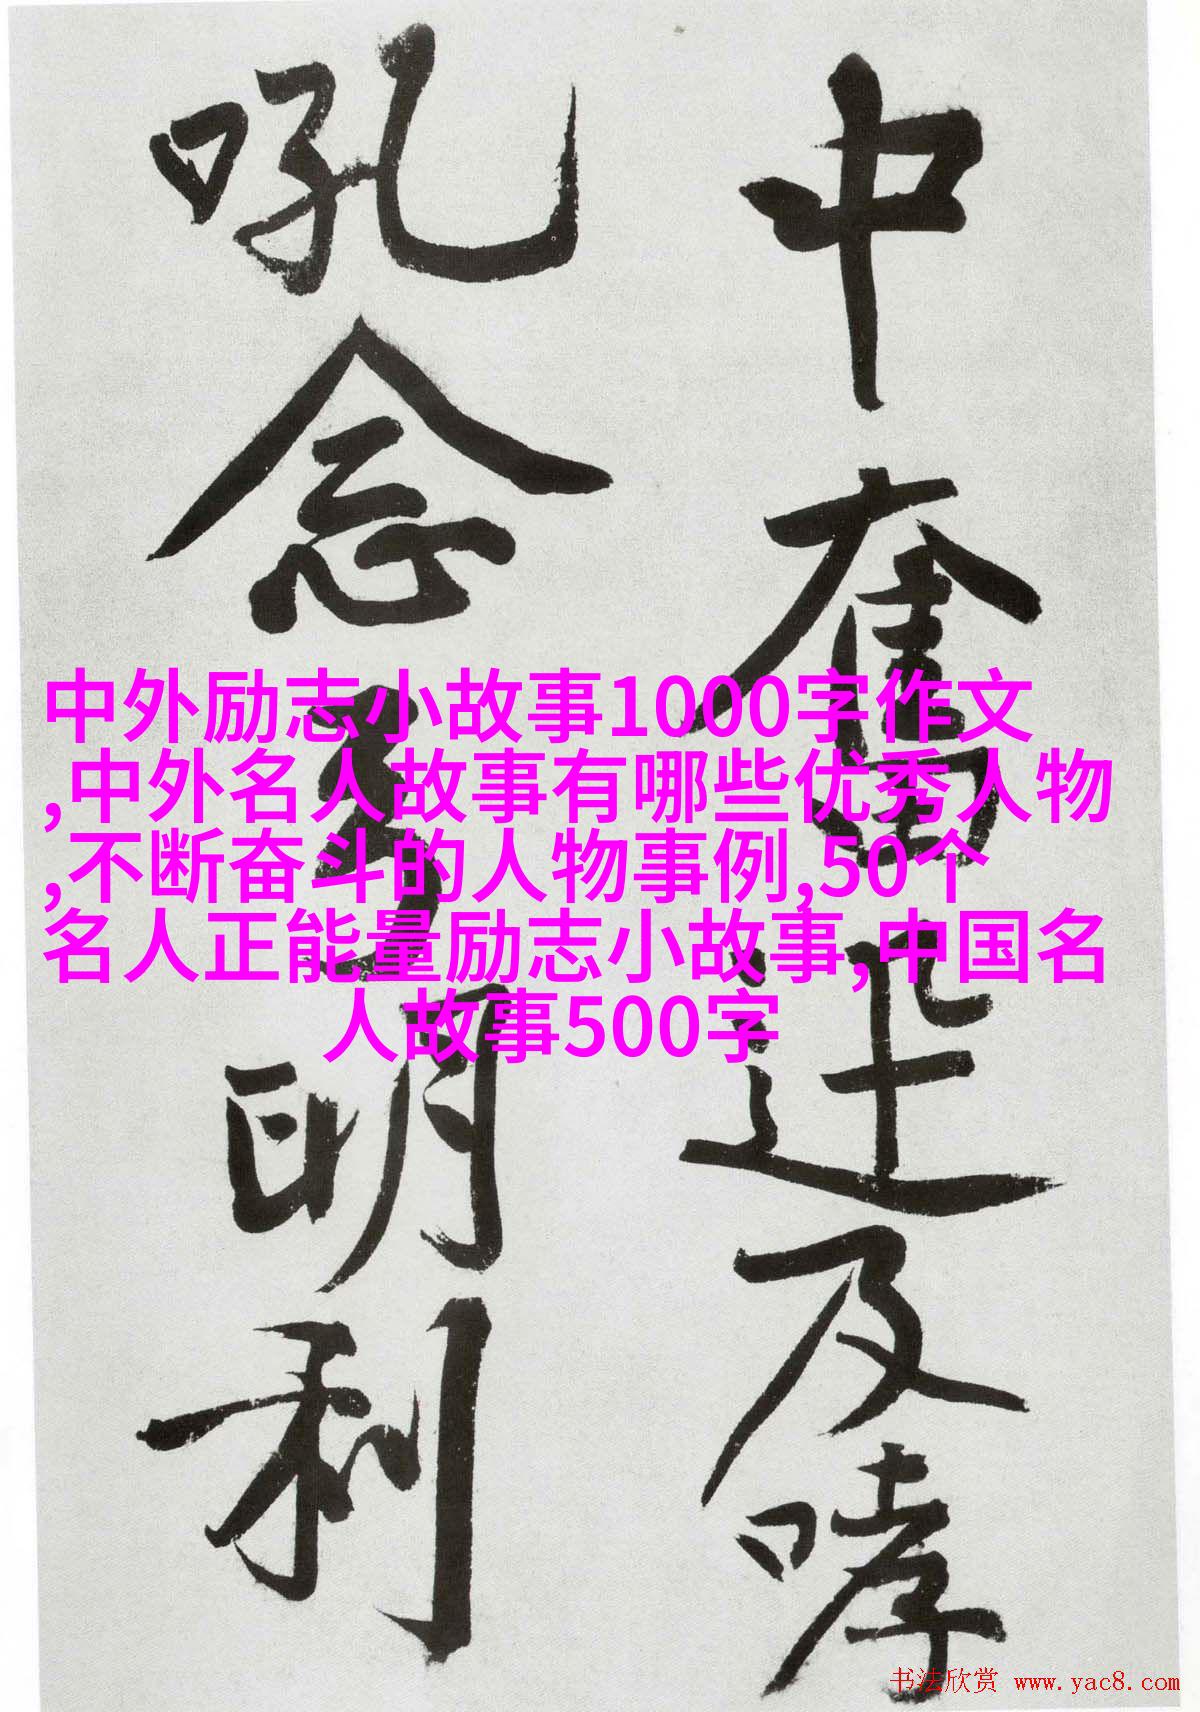 中奮迅及哮
吼念明利
中外励志小故事1000字作文
,中外名人故事有哪些优秀人物
,不断奋斗的人物事例,50个
名人正能量励志小故事,中国名
人故事500字
书法欣赏 www.yac8.com